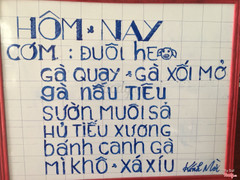 HÔM NAY
CƠM : ĐUÔI HEO
GÀ QUAY - GÀ XỐI MỞ
GÀ NẤU TIÊU
SƯỜN MUỐI SẢ
HỦ TIẾU XƯƠNG
bánh canh gà
MÌ KHÔ - XÁ XÍU
Kính Mời